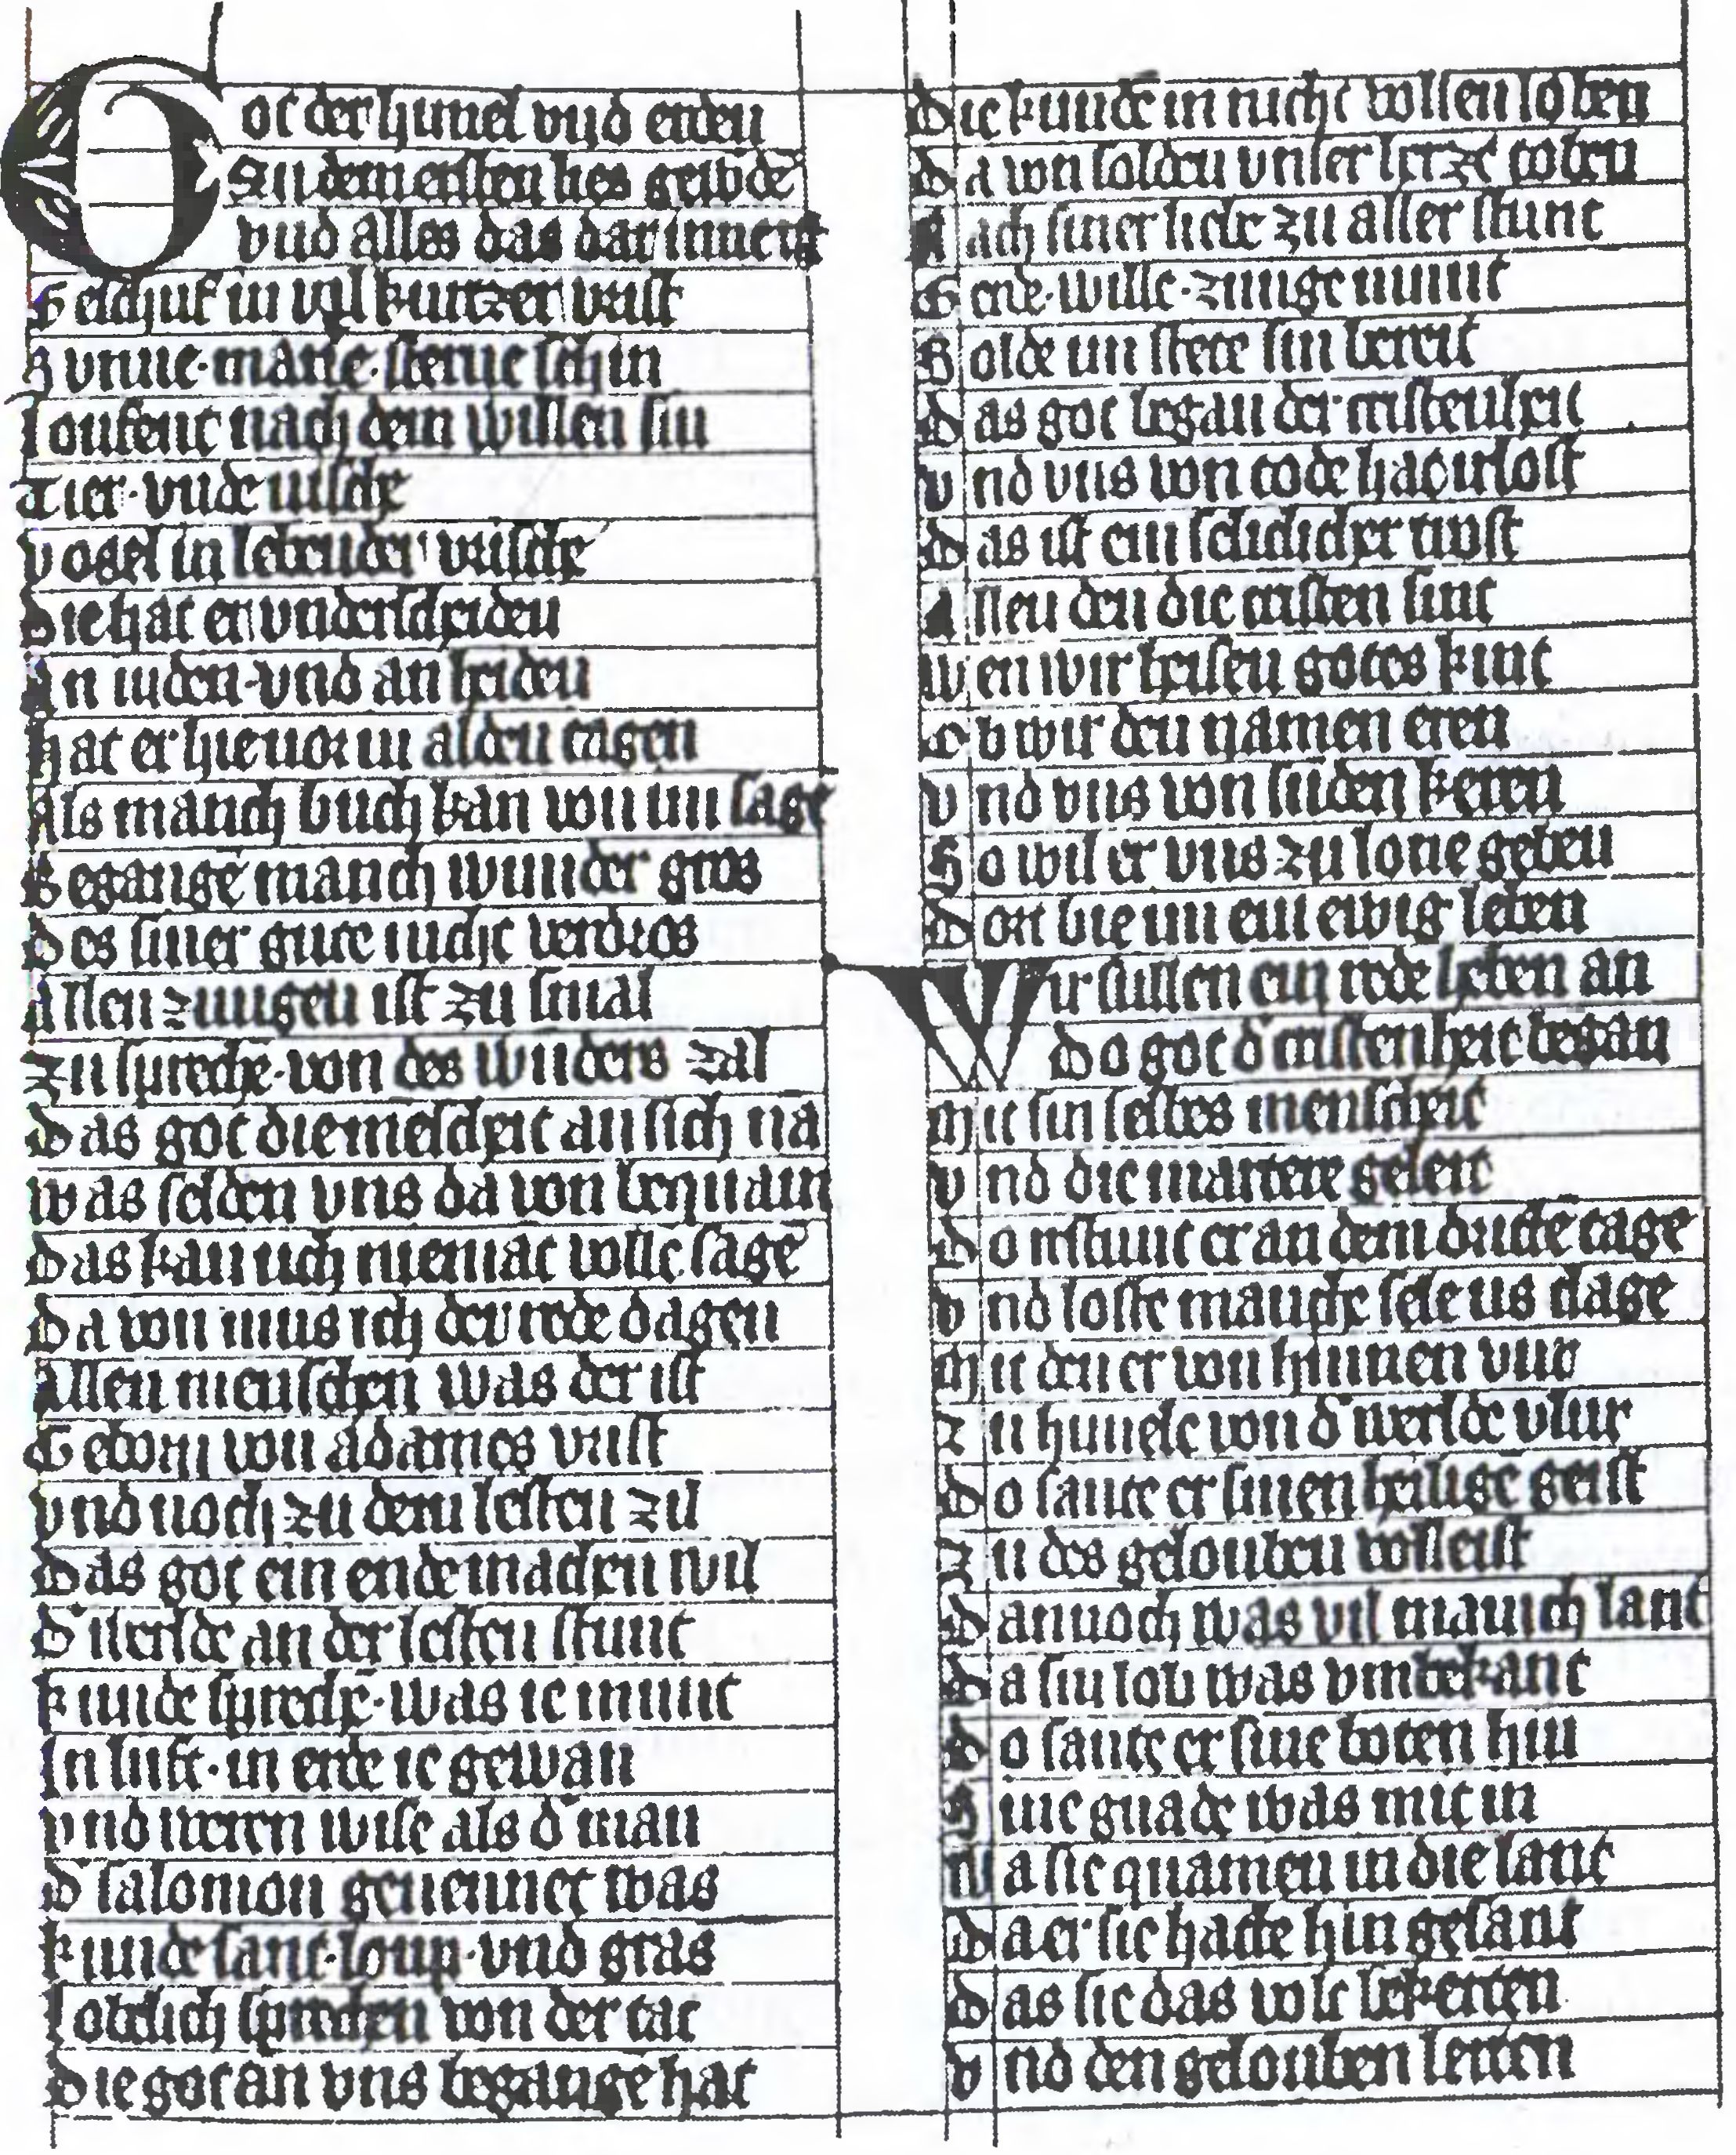 Got der himel vnd erden
Zu dem ersten lies gewdē
vnd alles das dar inne ist
Geschuf in vil kurtzer vrist
Sunne·mane·sterne schin
loufent nach dem willen sin
Tier·vnde uische
Vogel in lebender vrische
Die hat er vnderscheiden
An iuden·vnd an heiden
hat er hie uor in alden tagen
Als manch buch kan von im sagē
Begangē manch wunder gros
Des siner gute nicht verdros
Allen zungen ist zu smal
Zu sprechē·von des wnders zal
Das got die mēscheit an sich nā
Was selden vns da von bequam
Das kan uch nieman volle sagē
Da von mus ich der rede dagen
Allen menschen was der ist
Geborn von adames vrist
Vnd noch zu dem lesten zil
Das got ein ende machen wil
D' werlde an der lesten stunt
kunde sprechē·was ie munt
In luft·in erde ie gewan
Vnd weren wise als d' man
D' salomon genennet was
kunde sant·loup·vnd gras
lobelich sprechen von der tat
Die got an vns begangē hat
Die kunde in nicht vollen loben
Da von solden vnser herze toben
Nach siner liebe zu aller stunt
Gerde·wille·zunge munt
Solde im stete sin bereit
Das got began der cristenheit
Vnd vns von tode hat irlost
Das ist ein selichlicher trost
Allen den die cristen sint
Wen wir heisen gotes kint
Ob wir den namen eren
Vnd vns von sunden keren
So wil er vns zu lone geben
Dort bie im ein ewig leben
Wir sullen ein rede heben an
Do got d' cristenheit began
Mit sin selbes menscheit
Vnd die martere geleit
Do irstunt er an dem drittē tage
Vnd loste manche sele us clage
Mit den er von hinnen vur
Zu himele von d' werlde vlur
Do sante er sinen heiligē geist
Zu des gelouben volleist
Dannoch was vil manich lant
Da sin lob was vmbekant
Do sante er sine boten hin
Sine gnade was mit in
Wa sie quamen in die lant
Da er sie hatte hin gesant
Das sie das volc bekerten
Vnd den gelouben lerten